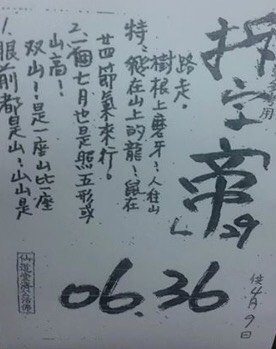 拆字帝
29
4月9日
1、眼前都是山!山山是
双山!是一座山比一座
山高!
2、一個七月也是照五形或
廿四節氣來行。
特:能在山上的龍:鼠在
樹根上磨牙:人往山
路走。
06.36